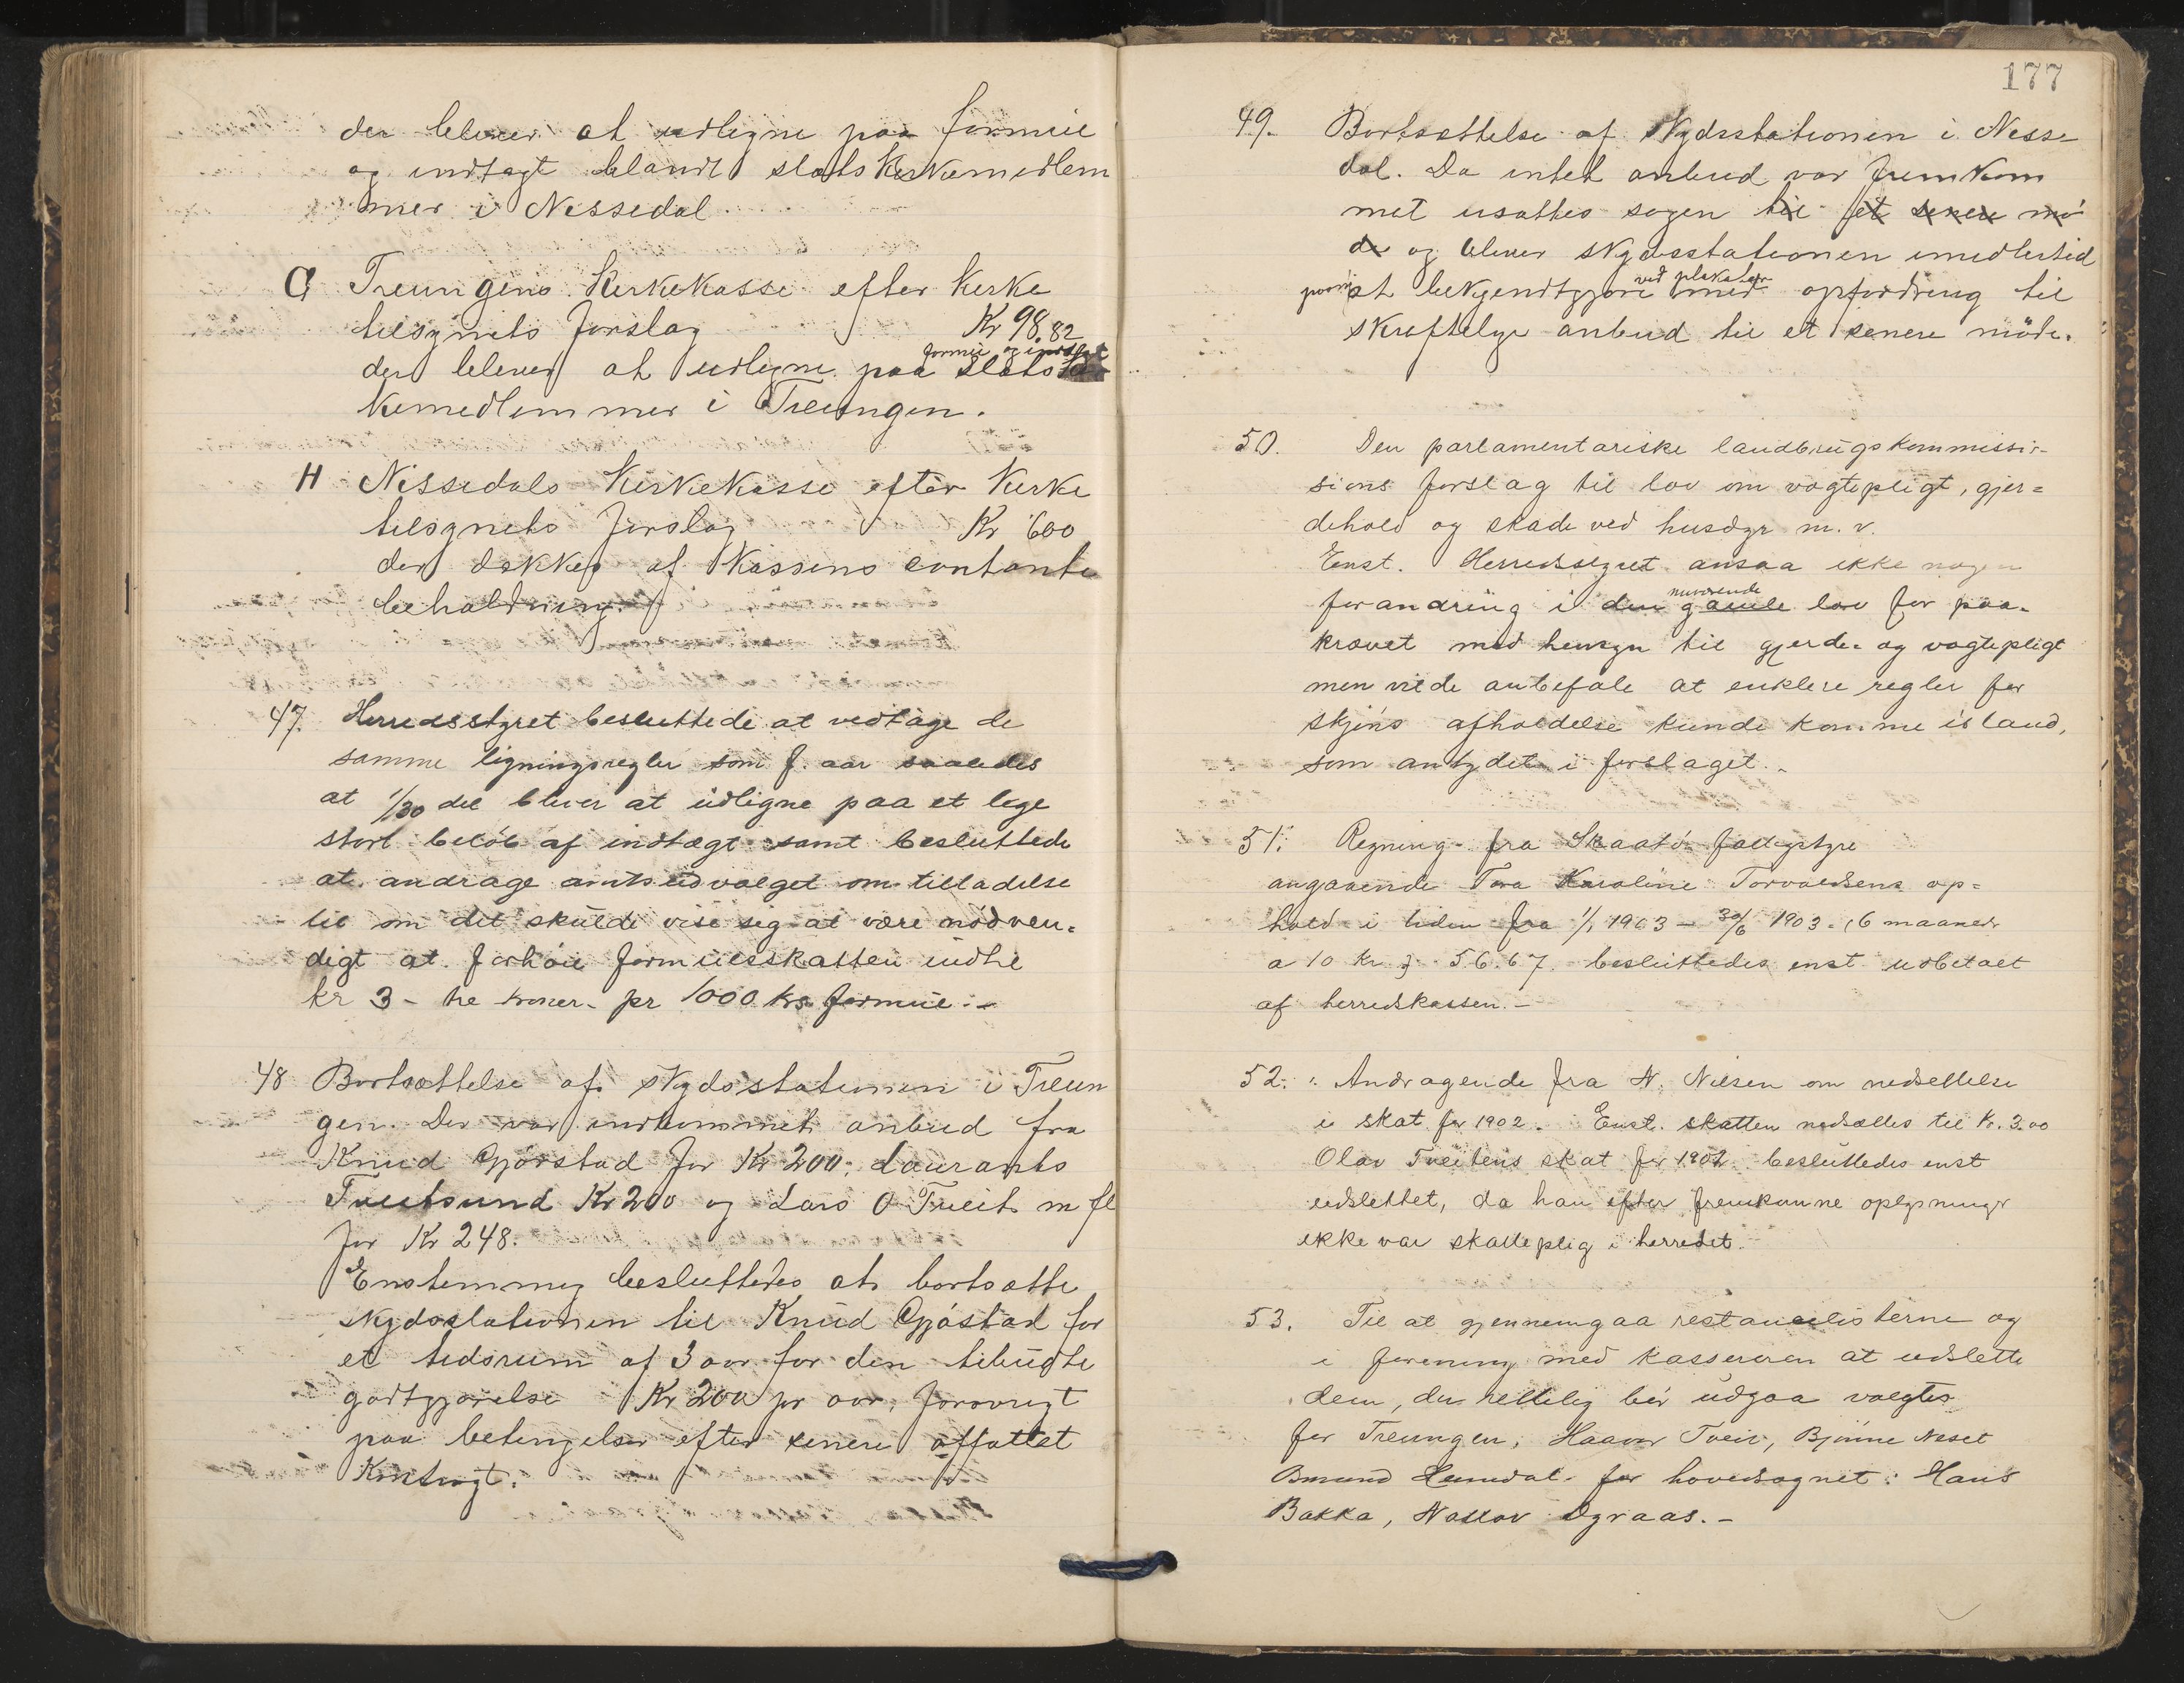 der blever at udligne paa formue
og indtægt blandt statskirkemedlem
mer i Nissedal
G Treungens Kirkekasse efter Kirke
tilsynets forslag Kr 98.82
formue og indtægt
der blever at udligne paa Stats
kemedlemmer i Treungen.
H Nissedals Kirkekasse efter Kirke
tilsynets forslag Kr 600
der dækkes af Kassens contante
beholdning.
47. Herredsstyret besluttede at vedtage de
samme ligningsregler som f. aar saaledes
at 1/30 del bliver at udligne paa et lige
stort beløb af indtægt samt besluttede
at andrage amtsudvalget om tilladelse
til om det skulde vise sig at være nødven-
digt at forhöie formuesskatten indtil
kr 3 - tre kroner - pr 1000 krs formue. -
48 Bortsættelse af skydsstationen i Treun
gen. Der var indkommet anbud fra
Knud Gjørstad for Kr 200; Laurants
Tveitsund Kr 200 og Lars O Tveit m fl
for Kr 248.
Enstemmig besluttedes at bortsætte
skydsstationen til Knud Gjöstad for
et tidsrum af 3 aar for den tilbudte
godtgjörelse Kr 200 pr aar, forøvrigt
paa betingelser efter senere affattet
Kontragt.
177
49. Bortsættelse af Skydsstationen i Nisse-
dal. Da intet anbud var fremkom
met usattes sagen til et senere mö
de og blever skydsstationen imidlertid
ved plakater
paany at bekjendtgjøre med opfordring til
skriftlige anbud til et senere möde.
50. Den parlamentariske landbrugskommissi-
sions forslag til lov om vogtepligt, gjer=
dehold og skade ved husdyr m. v.
Enst. Herredsstyret ansaa ikke nogen
nuværende
forandring i den gamle lov for paa-
krævet med hensyn til gjerde- og vogtepligt
men vilde anbefale at enklere regler for
skjöns afholdelse kunde komme istand,
som antydet i forslaget. -
51. Regning fra Skaatö fattigstyre
angaaende Tora Karoline Torvaldsens op=
hold i tiden fra 1/1 1903 - 30/6 1903 - (6 maaneder
a 10 kr.) 56.67. besluttedes enst udbetalt
af herredskassen. -
52. Andragende fra N. Nilsen om nedsettelse
i skat for 1902. Enst. skatten nedsattes til Kr. 3.00
Olav Tveitens skat for 1902 besluttedes enst
udslettet, da han efter fremkomne oplysninger
ikke var skatteplig i herredet.
53. Til at gjennemgaa restancelisterne og
i forening med kassereren at udslette
dem, der rettelig bör udgaa valgtes
for Treungen: Haavor Tveit, Bjönne Neset
Osmund Heimdal. for hovedsognet: Hans
Bakka, Nottov Ögraas. -